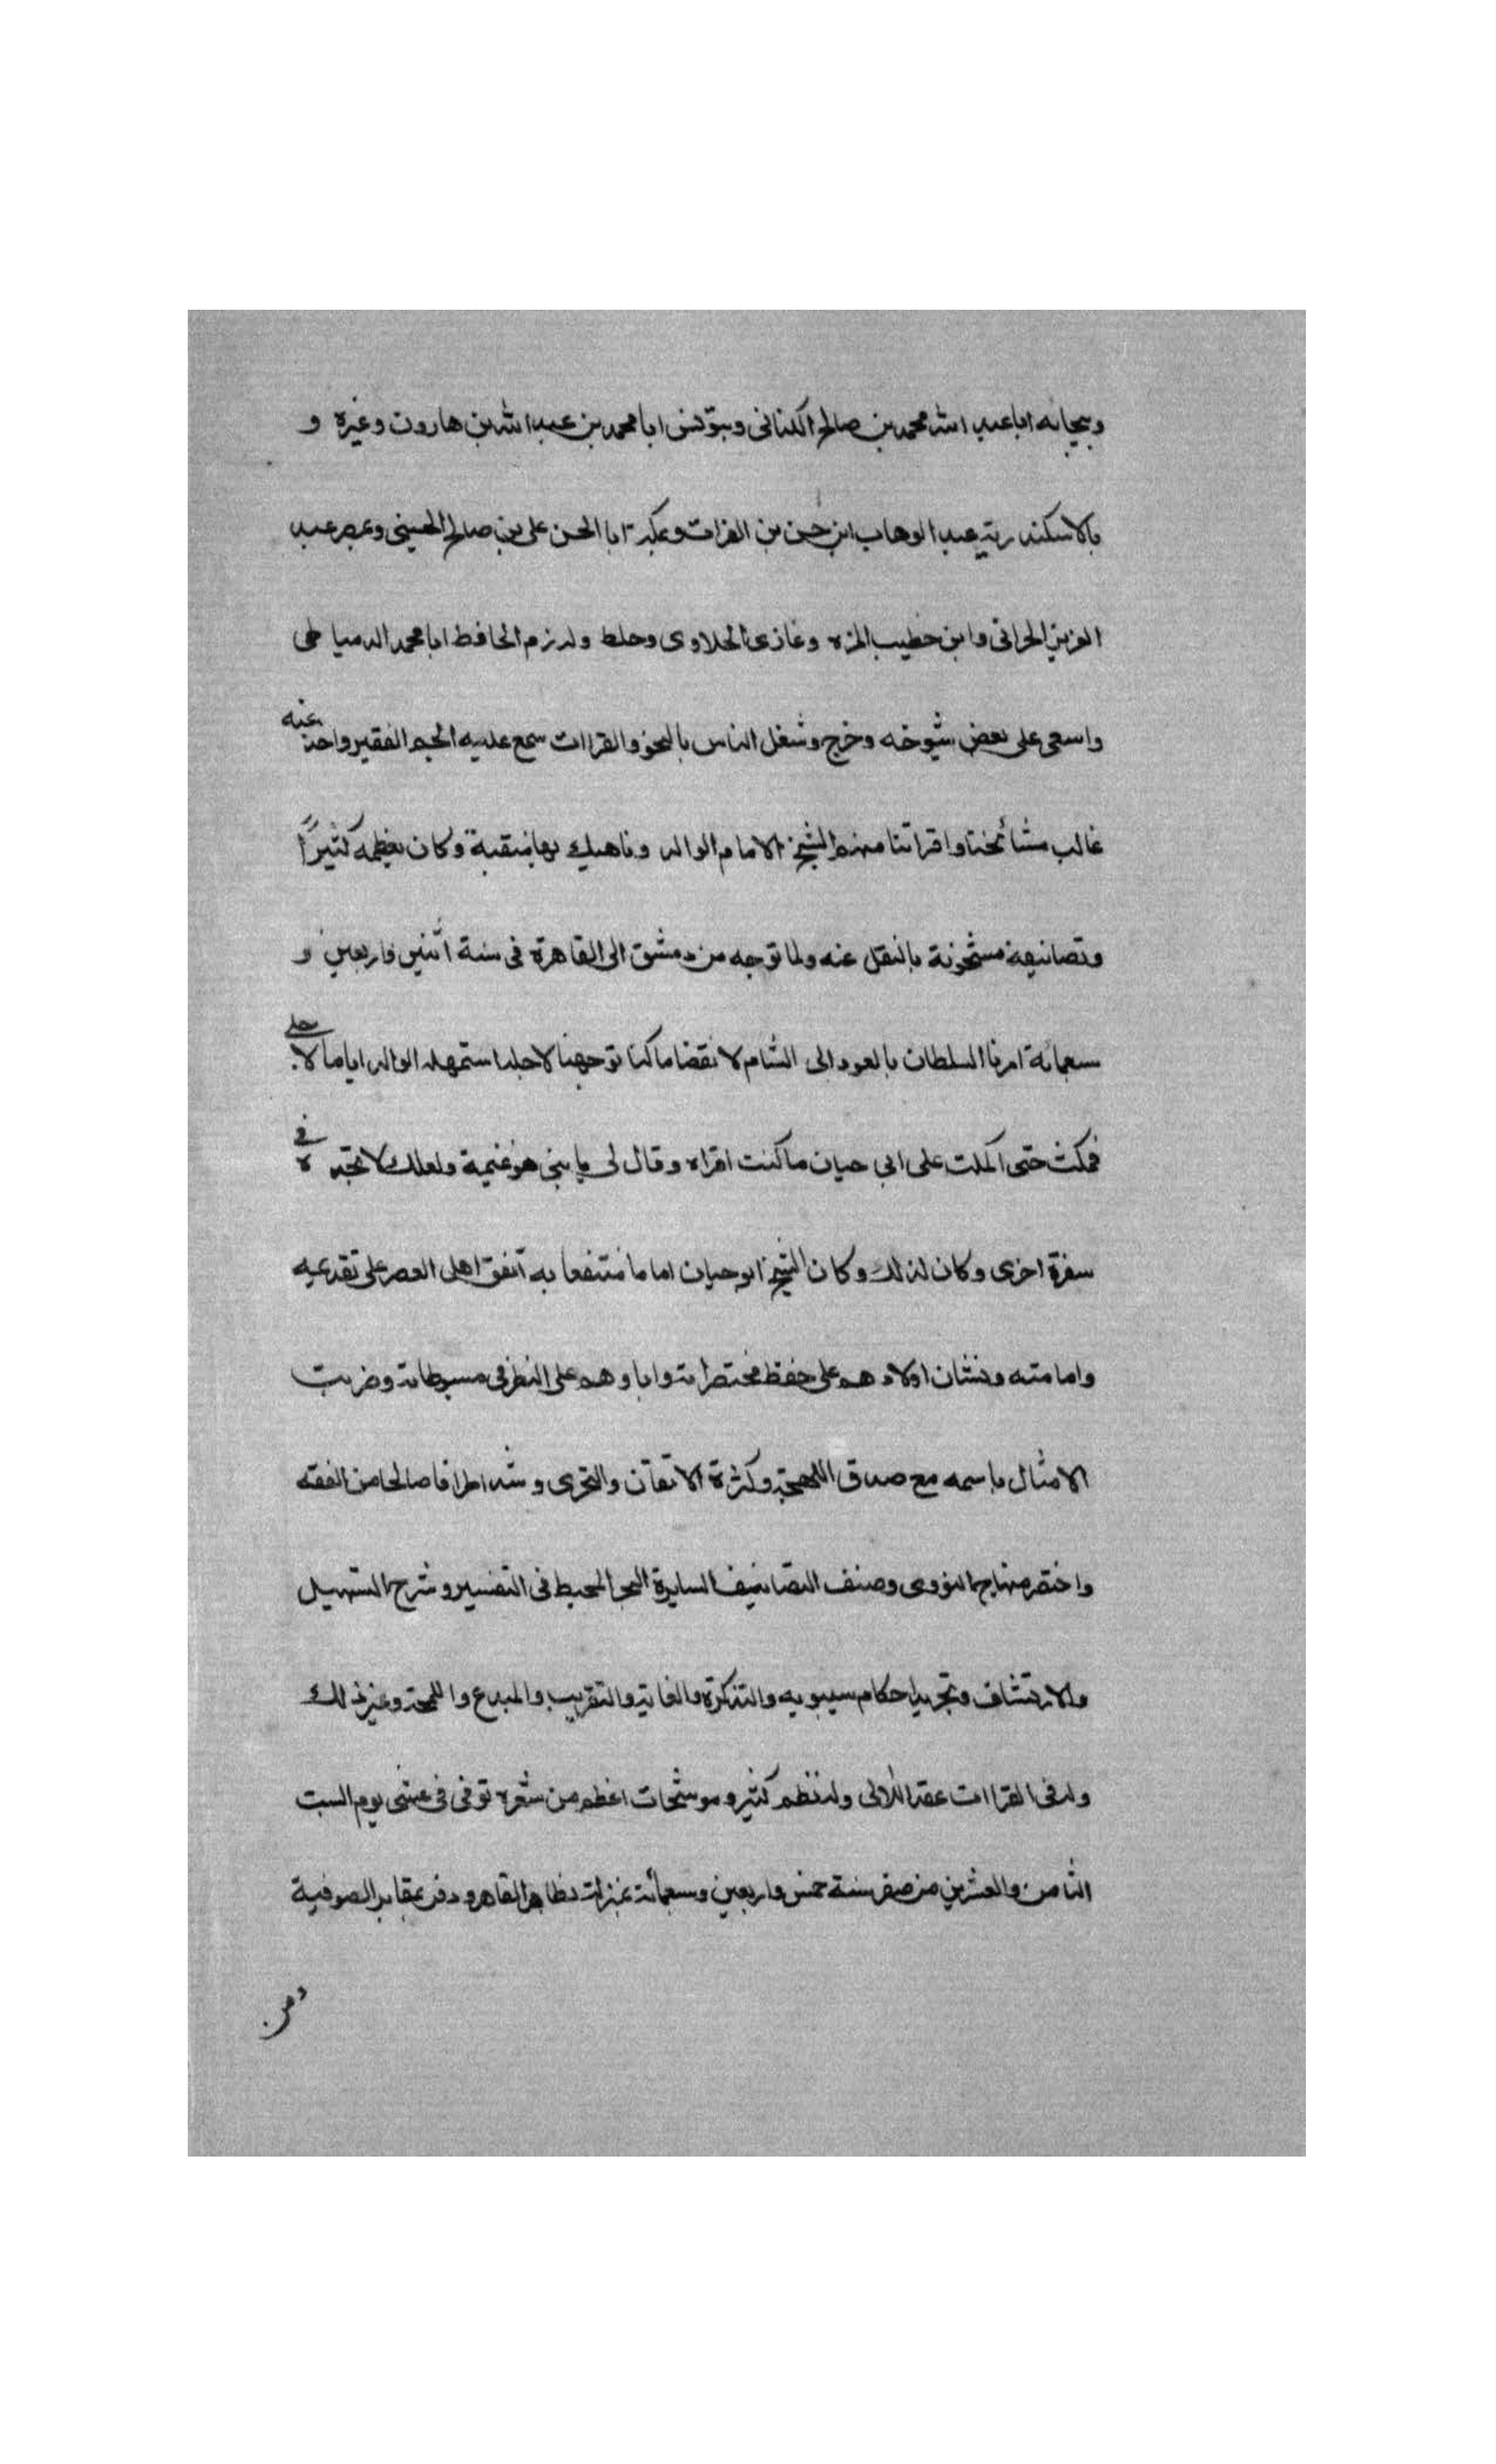 وبجايه اباعبد الله محمد بن صالح الكنانى وبتونس ابا محمد بن عبد الله بن هارون وغيره و
بالاسكندرية عبد الوهاب ابن حسن بن الفرات وبمكة ابا الحسن على بن صالح الحسينى وبمصر عبد
العزيز الحرانى وابن خطيب المزه وغازى الحلاوى وخلط ولازم الحافظ ابا محمد الدمياطى
واسعى على بعض شيوخه وخرج وشغل الناس بالنحو والقراات سمع عليه الجم الفقير واخذ عنه
غالب مشائخنا واقراننا منهم الشيخ الامام الوالد وناهيك بها منقبة وكان يعظمه كثيرًا
وتصانيفه مشحونة بالنقل عنه ولما توجه من دمشق الى القاهرة فى سنة اثنين واربعين و
سبعمائة امرنا السلطان بالعود الى الشام لانقضا ما كنا توجهنا لاجله استمهله الوالد اياما لاجلى
فمكث حتى اكملت على ابى حيان ما كنت اقراه وقال لى يا بنى هو غنيمة ولعلك لا تجده فى
سفرة اخرى وكان لذلك وكان الشيخ ابو حيان اماما منتفعا به اتفق اهل العصر على تقديمه
وامامته ونشان اولادهم على حفظ مختصراته واباوهم على النظر فى مبسوطاته وضربت
الامثال باسمه مع صدق اللهجة وكثرة الاتقان والتحرى وشد اطرافا صالحا من الفقه
واختصر منهاج النووى وصنف التصانيف السايرة البحر المحيط فى التفسير وشرح التسهيل
والارتشاف وتجريد احكام سيبويه والتذكرة والغاية والتقريب والمبدع واللمحة وغير ذلك
وله فى القراات عقد اللالى وله نظم كثير وموشحات اعظم من شعره توفى فى عشى يوم السبت
الثامن والعشرين من صفر سنة خمس واربعين وسبعمائة بمنزله بظاهر القاهره ودفن بمقابر الصوفية